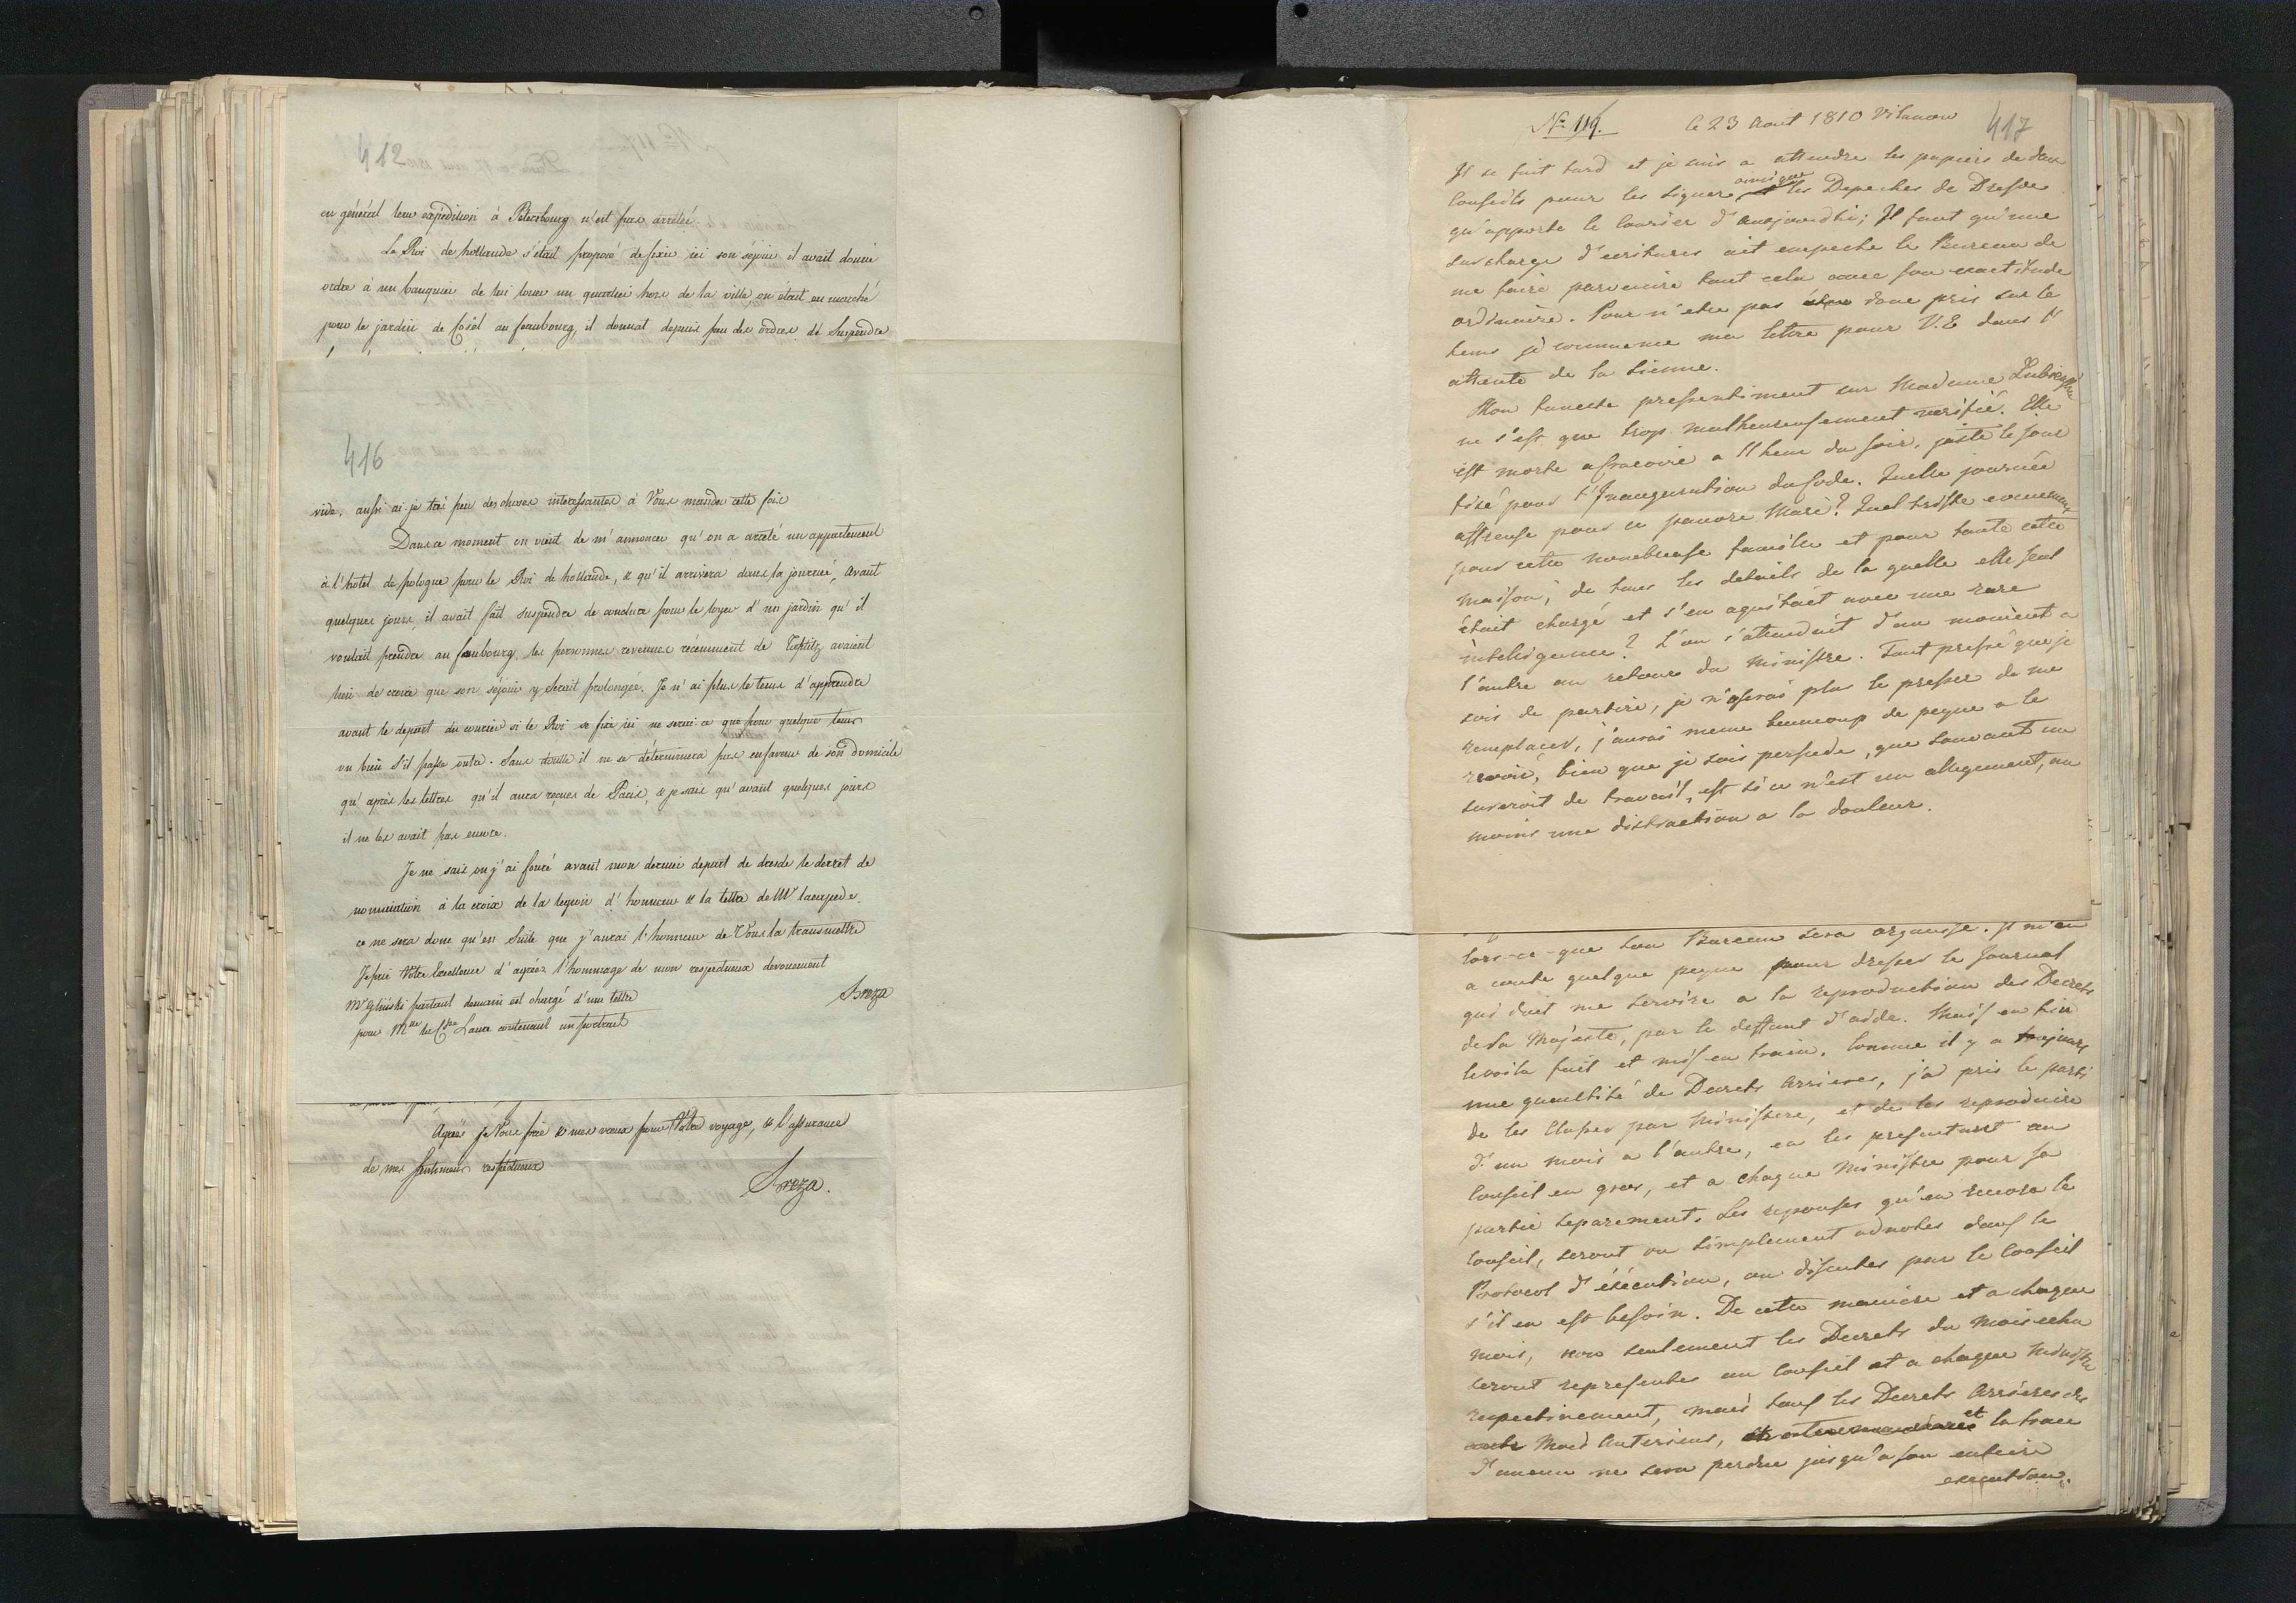 412
en général leur expédition à Pétersbourg n'est pas arrêtée.
Le Roi de hollande s'était proposé de fixer ici son séjour il avait donné
ordre à un banquier de lui louer un quartier hors de la ville on était en marché
pour le jardin de Cosel au faubourg, il donnat depuis peu des ordres de Suspendre
416
vide, aussi ai-je très peu des choses interessantes à Vous mander cette fois
Dans ce moment on vient de m'annoncer qu'on a arrêté un appartement
à l'hotel de pologne pour le Roi de hollande, & qu'il arrivera dans la journée, avant
quelques jours, il avait fait suspendre de conclure pour le loyer d'un jardin qu'il
voulait prendre au faubourg, les personnes revenues récemment de Töplitz avaient
lieu de croire que son séjour y serait prolongée. Je n'ai plus le tems d'apprendre
avant le depart du courier si le Roi se fixe ici ne serai-ce que pour quelque tems
ou bien s'il passe outre. Sans doute il ne se déterminera pas en faveur de son domicile
qu'après les lettres qu'il aura reçues de Paris, & je sais qu'avant quelques jours
il ne les avait pas encore.
Je ne sais où j'ai fouré avant mon dernier depart de dresde le decret de
nomination à la croix de la legion d'honneur & la lettre de Mr lacepede.
ce ne sera donc qu'en Suite que j'aurai l'honneur de Vous la transmettre
Je prie Votre Excellence d'agréer l'hommage de mon respectueux devouement
Breza
Mr Gliński partant demain est chargé d'une lettre
pour Mme la Csse Laure contenant un portrait
Agréez je Vous prie & mes vœux pour Votre voyage, & l'assurance
de mes sentimens respectueux
Breza.
No 119.
le 23 Aout 1810 Vilanow
417
Il se fait tard et je suis a attendre les papiers de deux
Conseils pour les signer, ainsi que les Depeches de Dresde
qu'apporte le Courier d'aujourdhi; Il faut qu'une
surcharge d'ecritures ait empeché le Bureau de
me faire parvenire tout cela avec son exactitude
ordinaire. Pour n'etre pas donc pris sur le
tems je commence ma lettre pour V.E dans l'
attente de la Sienne.
Mon funeste pressentiment sur Madame Lubienska
ne s'est que trop malheureusement verifié. Elle
est morte a 11 heure du soir, juste le jour
fixé pour l'Inauguration du Code. Quelle journée
affreuse pour ce pauvre Mari? Quel triste evenement
pour cette nombreuse famille et pour toute cette
maison, de tous les details de la quelle elle seul
était chargé et s'en aquitait avec une rare
inteligence? L'on s'attendait d'un moment a
l'autre au retour du Ministre. Tout pressé que je
suis de partire, je n'oserai plus le presser de me
remplacer, j'aurai meme beaucoup de peyne a le
revoir, bien que je sois persuadé, que souvant un
surcroit de travail, est si ce n'est un allegement, au
moins une distraction a la douleur.
lors-ce-que son Bureau sera organisé. Il m'en
a couté quelque peyne pour dresser le Journal
qui doit me servire a la reproduction des Decrets
de Sa Majesté, par le deffaut d'aide. Mais en fin
le voila fait et mis en train. Comme il y a toujours
une quantité de Decrets Arrieres, j'ai pris le parti
de les Classer par Ministere, et de les reproduire
d'un mois a l'autre, en les presentant au
Conseil en gros, et a chaque Ministre pour sa
partie separement. Les reponses qu'en recevra le
Conseil, seront ou simplement adnotés dans le
Protocol d'exécution, ou discutés par le Conseil
s'il en est besoin. De cette maniere et a chaque
mois, non seulement les Decrets du Mois echu
seront representés au Conseil et a chaque Ministre
respectivement, mais tous les Decrets Arrieres des
Mois Anterieurs, et la trace
d'aucun ne sera perdue jusqu'a son entiere
execution.